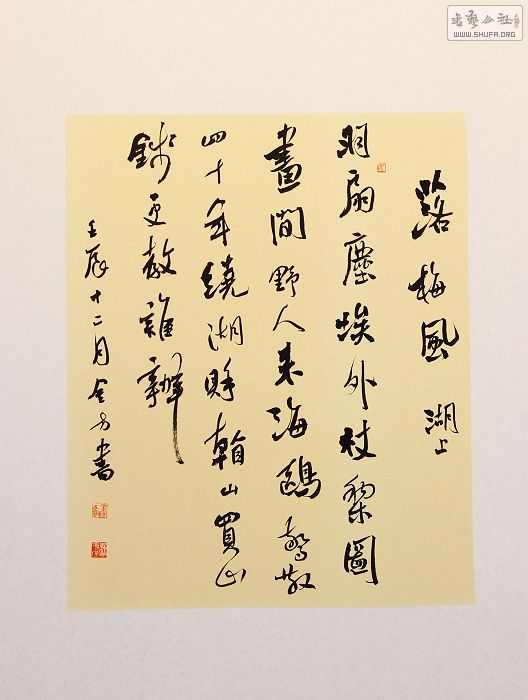 書藝公社
WWW.SHUFA.ORG
落梅風 湖上
羽扇塵埃外杖藜圖
畫間野人来海鷗驚散
四十年繞湖賖看山買山
錢更教誰辦
壬辰十二月書